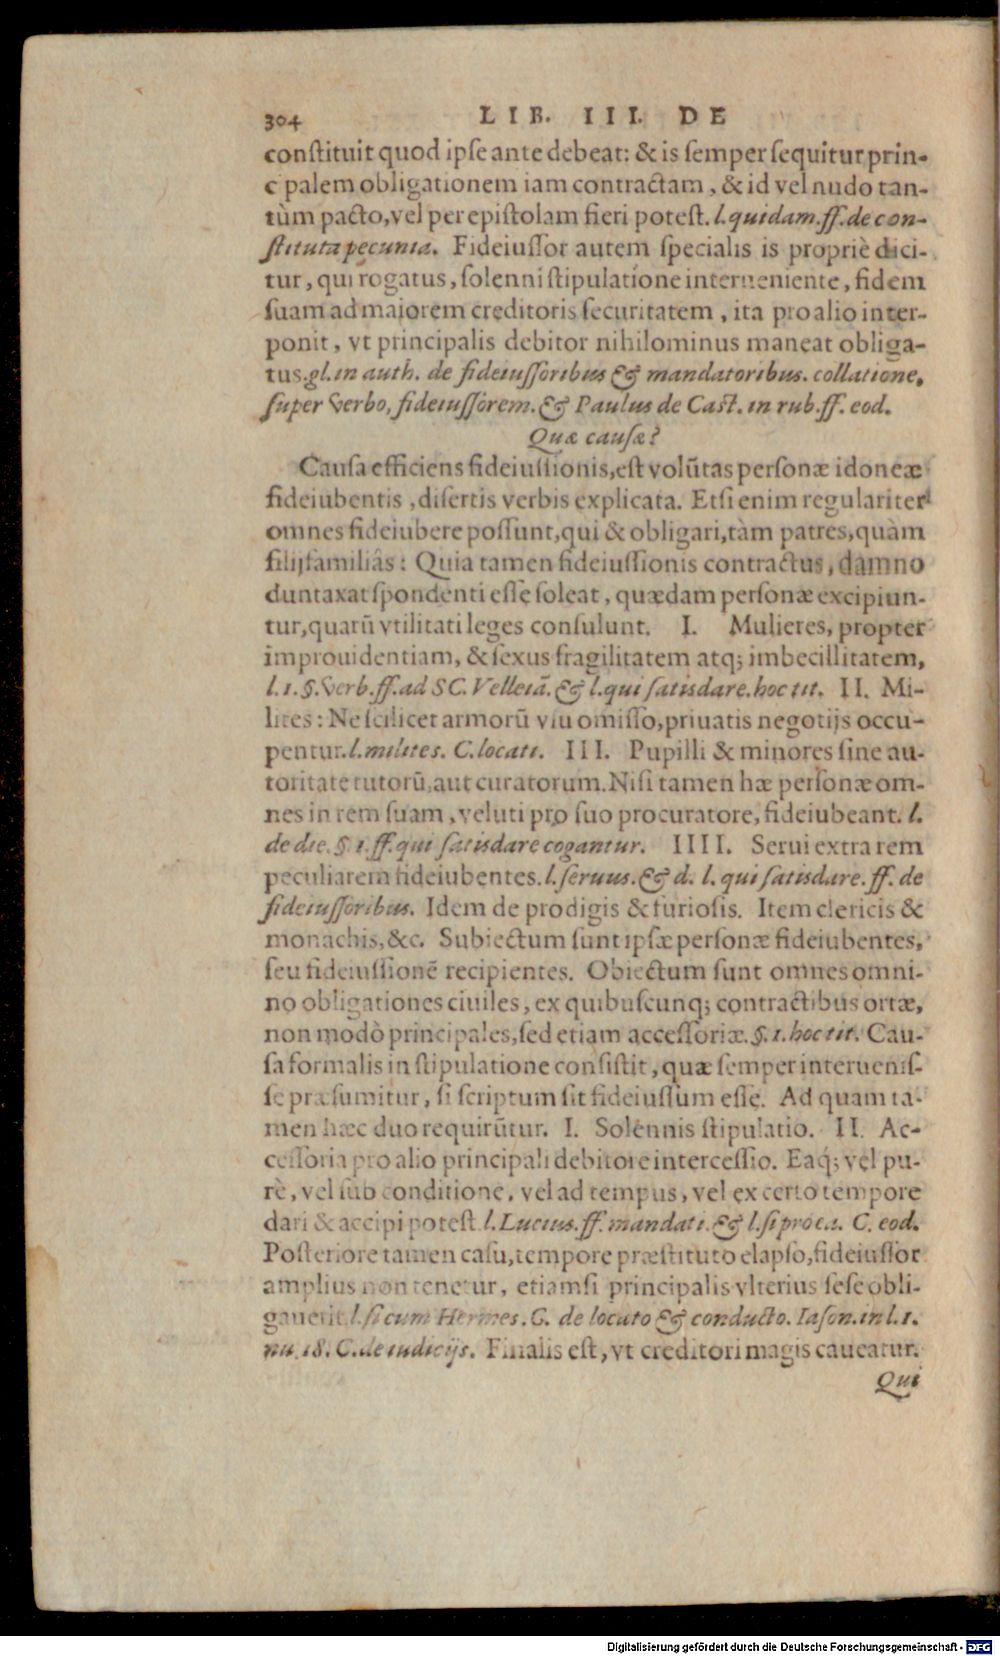 304 LIB. III. DE
conſtituit quod ipſe ante debeat: & is ſemper ſequitur prin-
c palem obligationem iam contractam, & id vel nudo tan-
tùm pacto, vel per epiſtolam fieri poteſt. l. quidam. ff. de con-
ſtituta pecunia. Fideiuſſor autem ſpecialis is propriè dici-
tur, qui rogatus, ſolenni ſtipulatione interueniente, fidem
ſuam ad maiorem creditoris ſecuritatem, ita pro alio inter-
ponit, vt principalis debitor nihilominus maneat obliga-
tus. gl. in auth. de fideiuſſoribus & mandatoribus. collatione,
ſuper verbo, fideiuſſorem. & Paulus de Caſt. in rub. ff. eod.
Quæ cauſæ?
Cauſa efficiens fideiuſſionis, eſt volūtas perſonæ idoneæ
fideiubentis, diſertis verbis explicata. Etſi enim regulariter
omnes fideiubere poſſunt, qui & obligari, tàm patres, quàm
filijfamiliâs: Quia tamen fideiuſſionis contractus, damno
duntaxat ſpondenti eſſe ſoleat, quædam perſonæ excipiun-
tur, quarū vtilitati leges conſulunt. I. Mulieres, propter
improuidentiam, & ſexus fragilitatem atq; imbecillitatem,
l. 1. §. verb. ff. ad SC. Velleiā. & l. qui ſatisdare. hoc tit. II. Mi-
lites: Ne ſcilicet armorū vſu omiſſo, priuatis negotijs occu-
pentur. l. milites. C. locati. III. Pupilli & minores ſine au-
toritate tutorū, aut curatorum. Niſi tamen hæ perſonæ om-
nes in rem ſuam, veluti pro ſuo procuratore, fideiubeant. l.
de die. §. 1. ff. qui ſatisdare cogantur. IIII. Serui extra rem
peculiarem fideiubentes. l. ſeruus. & d. l. qui ſatisdare. ff. de
fideiuſſoribus. Idem de prodigis & furioſis. Item clericis &
monachis, &c. Subiectum ſunt ipſæ perſonæ fideiubentes,
ſeu fideiuſſionē recipientes. Obiectum ſunt omnes omni-
no obligationes ciuiles, ex quibuſcunq; contractibus ortæ,
non modò principales, ſed etiam acceſſoriæ. §. 1. hoc tit. Cau-
ſa formalis in ſtipulatione conſiſtit, quæ ſemper interueniſ-
ſe præſumitur, ſi ſcriptum ſit fideiuſſum eſſe. Ad quam ta-
men hæc duo requirūtur. I. Solennis ſtipulatio. II. Ac-
ceſſoria pro alio principali debitore interceſſio. Eaq; vel pu-
rè, vel ſub conditione, vel ad tempus, vel ex certo tempore
dari & accipi poteſt. l. Lucius. ff. mandati. & l. ſi pro ea. C. eod.
Poſteriore tamen caſu, tempore præſtituto elapſo, fideiuſſor
amplius non tenetur, etiamſi principalis vlterius ſeſe obli-
gauerit. l. ſi cum Hermes. C. de locato & conducto. Iaſon. in l. 1.
nu. 18. C. de iudicijs. Finalis eſt, vt creditori magis caueatur.
Qui
Digitalisierung gefördert durch die Deutsche Forschungsgemeinschaft - DFG